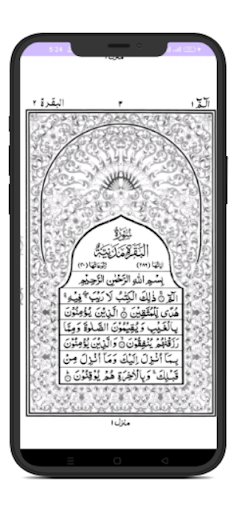 منزل ١
البقرة ٢
٣
الٓمّٓ ١
سُوْرَةُ
الْبَقَرَةِ مَدَنِيَّةٌ
اٰیَاتُهَا (٢٨٦)
رُكُوْعَاتُهَا (٤٠)
بِسْمِ اللّٰهِ الرَّحْمٰنِ الرَّحِیْمِ
الٓمّٓ ۚ ذٰلِكَ الْكِتٰبُ لَا رَیْبَ ۛ فِیْهِ ۛ
هُدًی لِّلْمُتَّقِیْنَ ۙ الَّذِیْنَ یُؤْمِنُوْنَ
بِالْغَیْبِ وَیُقِیْمُوْنَ الصَّلٰوةَ وَمِمَّا
رَزَقْنٰهُمْ یُنْفِقُوْنَ ۙ وَالَّذِیْنَ یُؤْمِنُوْنَ
بِمَاۤ اُنْزِلَ اِلَیْكَ وَمَاۤ اُنْزِلَ مِنْ
قَبْلِكَ ۚ وَبِالْاٰخِرَةِ هُمْ یُوْقِنُوْنَ
منزل ١